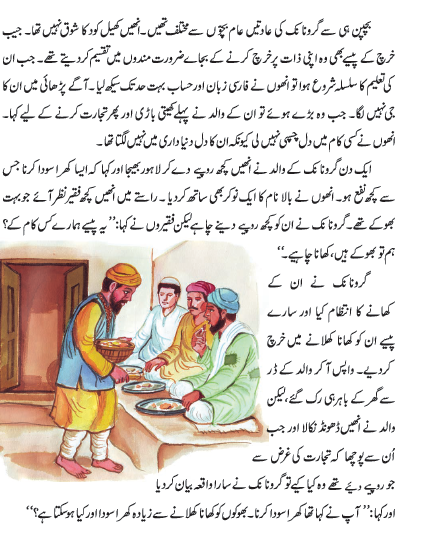 بچپن ہی سے گرونانک کی عادتیں عام بچّوں سے مختلف تھیں۔ انھیں کھیل کود کا شوق نہیں تھا۔ جیب
خرچ کے پیسے بھی وہ اپنی ذات پر خرچ کرنے کے بجاے ضرورت مندوں میں تقسیم کر دیتے تھے۔ جب ان
کی تعلیم کا سلسلہ شروع ہوا تو انھوں نے فارسی زبان اور حساب بہت حد تک سیکھ لیا۔ آگے پڑھائی میں ان کا
جی نہیں لگا۔ جب وہ بڑے ہوئے تو ان کے والد نے پہلے کھیتی باڑی اور پھر تجارت کرنے کے لیے کہا۔
انھوں نے کسی کام میں دل چسپی نہیں لی کیونکہ ان کا دل دنیا داری میں نہیں لگتا تھا۔
ایک دن گرونانک کے والد نے انھیں کچھ روپیے دے کر لاہور بھیجا اور کہا کہ ایسا کھرا سودا کرنا جس
سے کچھ نفع ہو۔ انھوں نے بالا نام کا ایک نوکر بھی ساتھ کر دیا۔ راستے میں انھیں کچھ فقیر نظر آئے جو بہت
بھوکے تھے۔ گرونانک نے ان کو کچھ روپیے دینے چاہے لیکن فقیروں نے کہا: ”یہ پیسے ہمارے کس کام کے؟
ہم تو بھوکے ہیں، کھانا چاہیے۔“
گرونانک نے ان کے
کھانے کا انتظام کیا اور سارے
پیسے ان کو کھانا کھلانے میں خرچ
کر دیے۔ واپس آ کر والد کے ڈر
سے گھر کے باہر ہی رک گئے، لیکن
والد نے انھیں ڈھونڈ نکالا اور جب
اُن سے پوچھا کہ تجارت کی غرض سے
جو روپیے دیئے تھے وہ کیا کیے تو گرونانک نے سارا واقعہ بیان کر دیا
اور کہا: ”آپ نے کہا تھا کھرا سودا کرنا۔ بھوکوں کو کھانا کھلانے سے زیادہ کھرا سودا اور کیا ہو سکتا ہے؟“